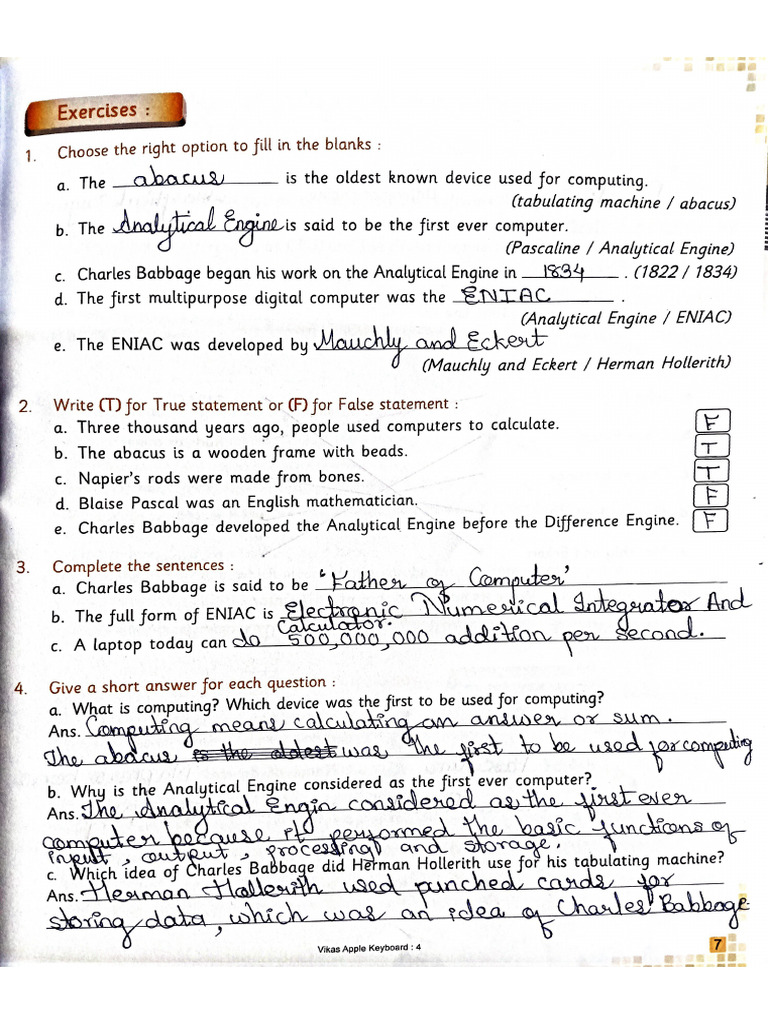 Exercises :
1. Choose the right option to fill in the blanks :
a. The abacus is the oldest known device used for computing.
(tabulating machine / abacus)
b. The Analytical Engine is said to be the first ever computer.
(Pascaline / Analytical Engine)
c. Charles Babbage began his work on the Analytical Engine in 1834 . (1822 / 1834)
d. The first multipurpose digital computer was the ENIAC .
(Analytical Engine / ENIAC)
e. The ENIAC was developed by Mauchly and Eckert
(Mauchly and Eckert / Herman Hollerith)
2. Write (T) for True statement or (F) for False statement :
a. Three thousand years ago, people used computers to calculate. F
b. The abacus is a wooden frame with beads. T
c. Napier's rods were made from bones. T
d. Blaise Pascal was an English mathematician. F
e. Charles Babbage developed the Analytical Engine before the Difference Engine. F
3. Complete the sentences :
a. Charles Babbage is said to be 'Father of Computer'
b. The full form of ENIAC is Electronic Numerical Integrator And
Calculator.
c. A laptop today can do 500,000,000 addition per second.
4. Give a short answer for each question :
a. What is computing? Which device was the first to be used for computing?
Ans. Computing means calculating an answer or sum.
The abacus is the oldest was the first to be used for computing
b. Why is the Analytical Engine considered as the first ever computer?
Ans. The Analytical Engin considered as the first ever
computer because it performed the basic functions of
input, output, processing and storage.
c. Which idea of Charles Babbage did Herman Hollerith use for his tabulating machine?
Ans. Herman Hollerith used punched cards for
storing data, which was an idea of Charles Babbage
Vikas Apple Keyboard : 4
7